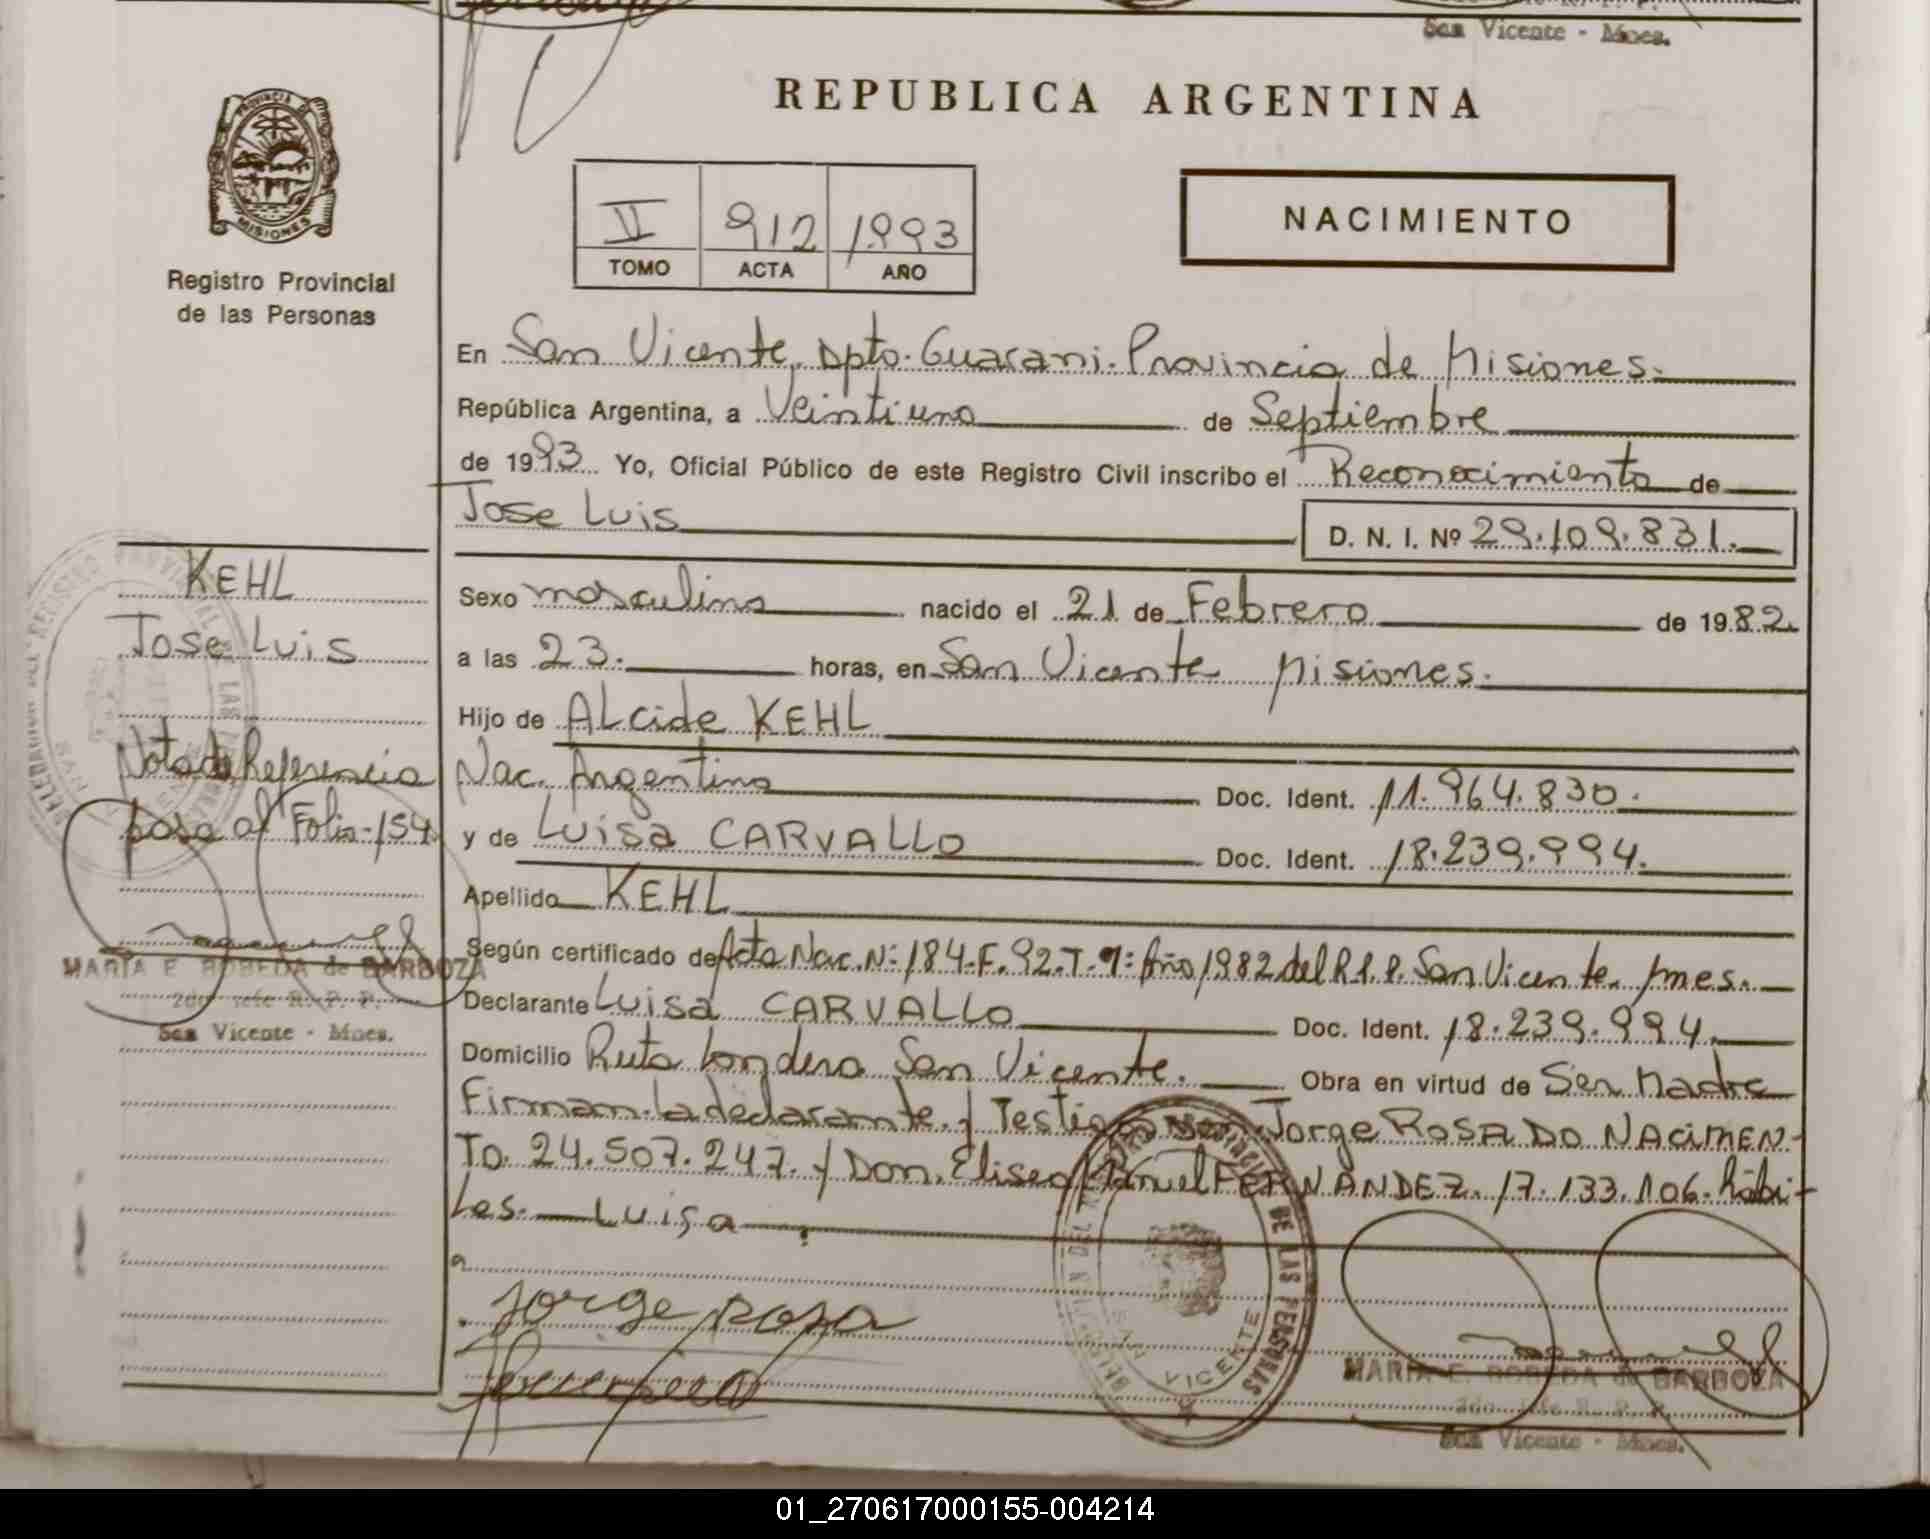 San Vicente - Mnes.
REPUBLICA ARGENTINA
PROVINCIA DE
MISIONES
Registro Provincial
de las Personas
II 912 1993
TOMO ACTA AÑO
NACIMIENTO
En San Vicente, Dpto. Guarani. Provincia de Misiones.
República Argentina, a Veintiuno de Septiembre
de 1993 Yo, Oficial Público de este Registro Civil inscribo el Reconocimiento de
Jose Luis D. N. I. Nº 29.109.831.
Sexo masculino nacido el 21 de Febrero de 1982.
a las 23. horas, en San Vicente Misiones.
Hijo de ALcide KEHL
Nac. Argentina Doc. Ident. 11.964.830.
y de Luisa CARVALLO Doc. Ident. 18.239.994.
Apellido KEHL
Según certificado de Acta Nac. Nº 184. F. 92. T. 1º Año 1982 del R.P.P. San Vicente. Mnes.
Declarante Luisa CARVALLO Doc. Ident. 18.239.994.
Domicilio Ruta San Vicente. Obra en virtud de Ser Madre
Firman. La declarante. y Testigos Don. Jorge ROSA DO NACIMEN-
TO. 24.507.247. y Don. Eliseo Manuel FERNANDEZ. 17.133.106. habi-
Les. Luisa
a
Jorge Rosa
KEHL
Jose Luis
Nota de Referencia
pasa al Folio-154
MARIA E. BOBEDA de BARBOZA
2do Jefe R. P. P.
San Vicente - Mnes.
DE LAS PERSONAS
VICENTE
MARIA E. BOBEDA de BARBOZA
2do Jefe R. P. P.
San Vicente - Mnes.
01_270617000155-004214